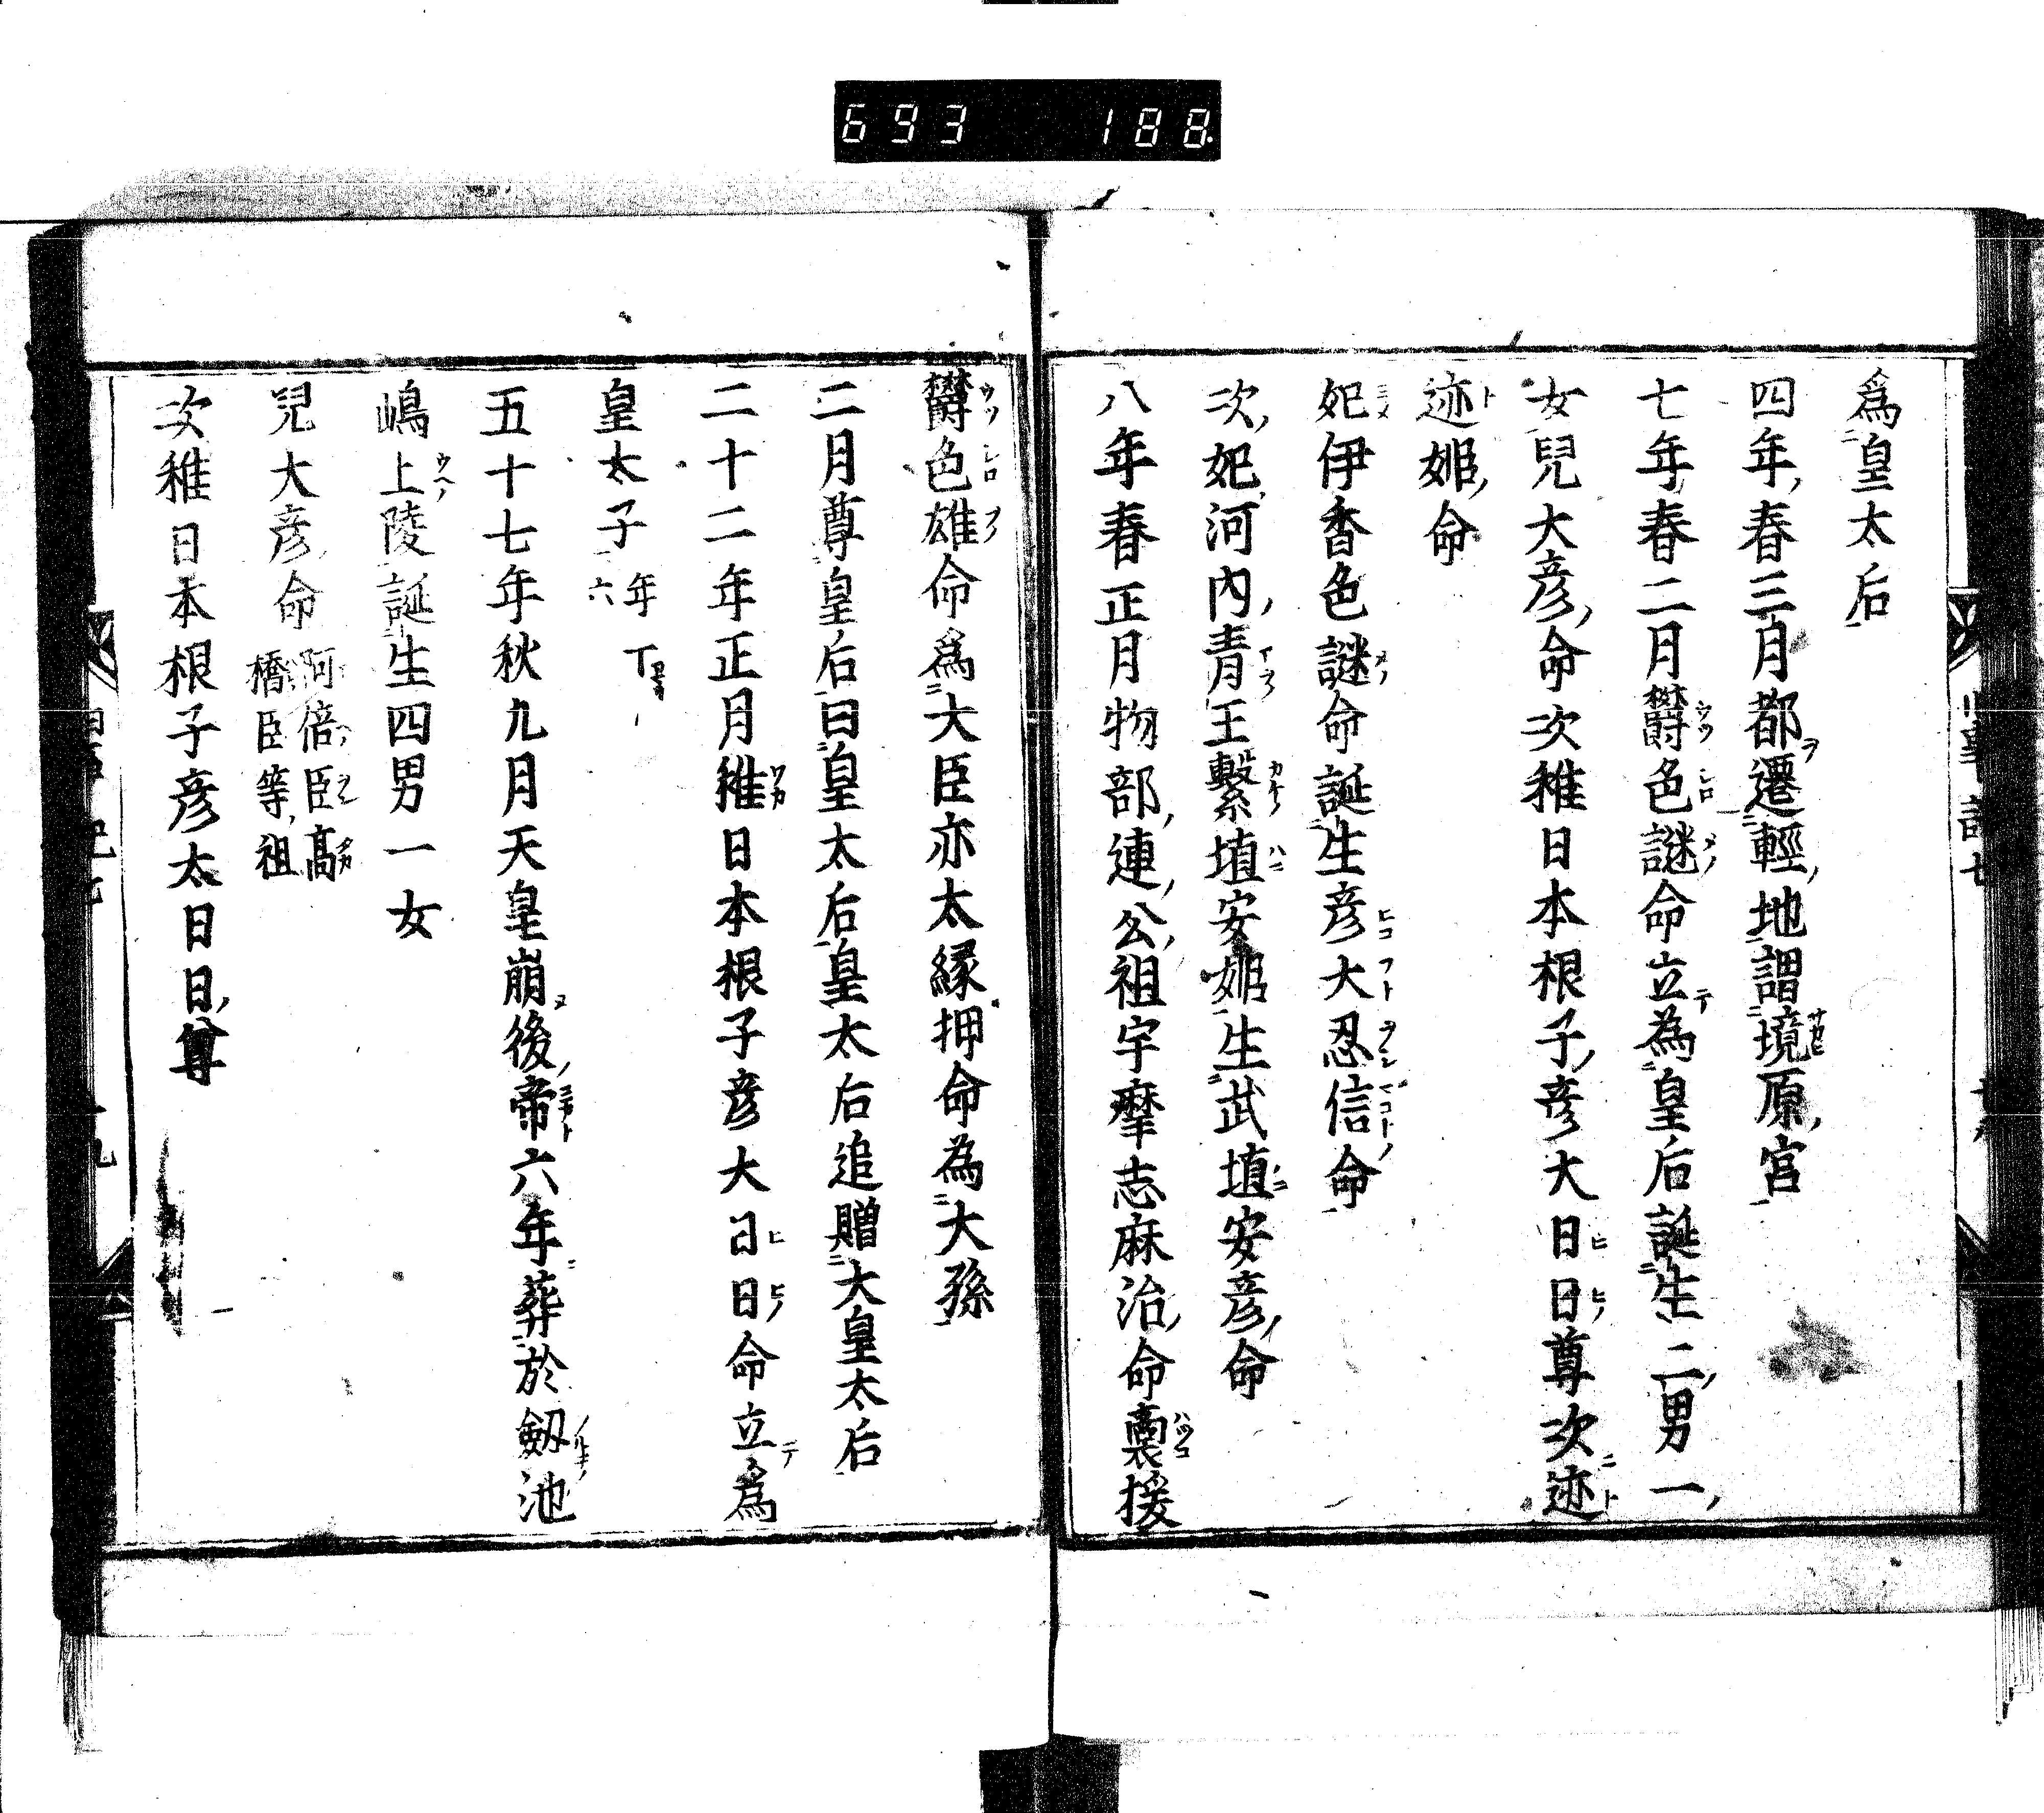 693 188
爲皇太后
四年春三月都遷輕地謂境原宮
七年春二月欝色謎命立為皇后誕生二男一
女兒大彦命次稚日本根子彦大日日尊次迹
迹姬命
妃伊香色謎命誕生彦大忍信命
次妃河內青玉繫埴安姬生武埴安彦命
八年春正月物部連公祖宇摩志麻治命裔援
欝色雄命爲大臣亦太緣押命為大孫
二月尊皇后曰皇太后皇太后追贈大皇太后
二十二年正月稚日本根子彦大日日命立爲
皇太子年六
五十七年秋九月天皇崩後帝六年葬於劔池
嶋上陵誕生四男一女
兒大彦命阿倍臣高橋臣等祖
次稚日本根子彦太日日尊